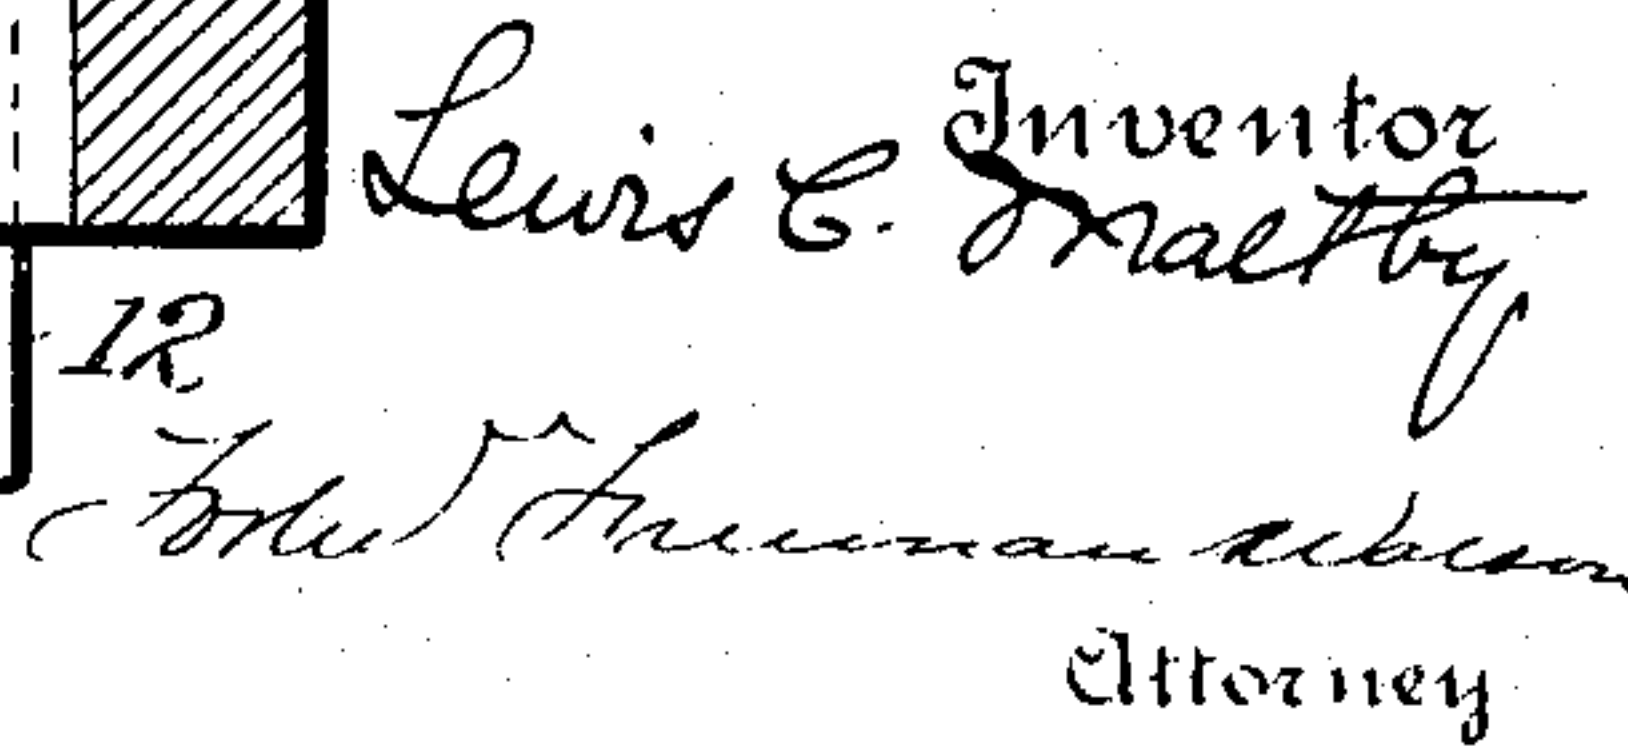 Inventor
Lewis C. Maltby
12
Freeman
Attorney